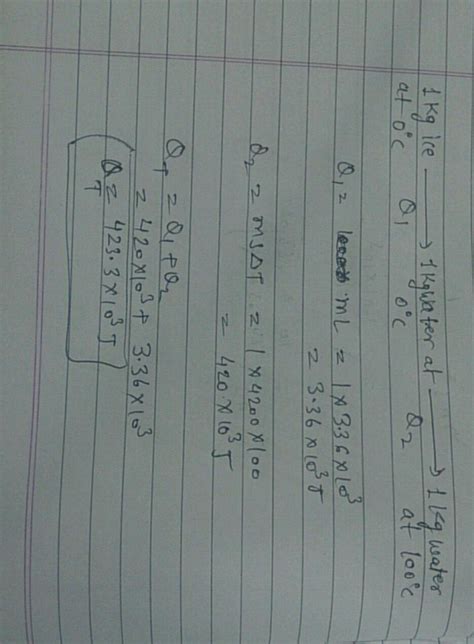 1 Kg ice ⟶ 1 Kg water at ⟶ 1 kg water
at 0°C Q₁ 0°C Q₂ at 100°C
Q₁ = mL = 1 × 3.36 × 10³
= 3.36 × 10³ J
Q₂ = msΔT = 1 × 4200 × 100
= 420 × 10³ J
Q_T = Q₁ + Q₂
= 420 × 10³ + 3.36 × 10³
Q_T = 423.3 × 10³ J